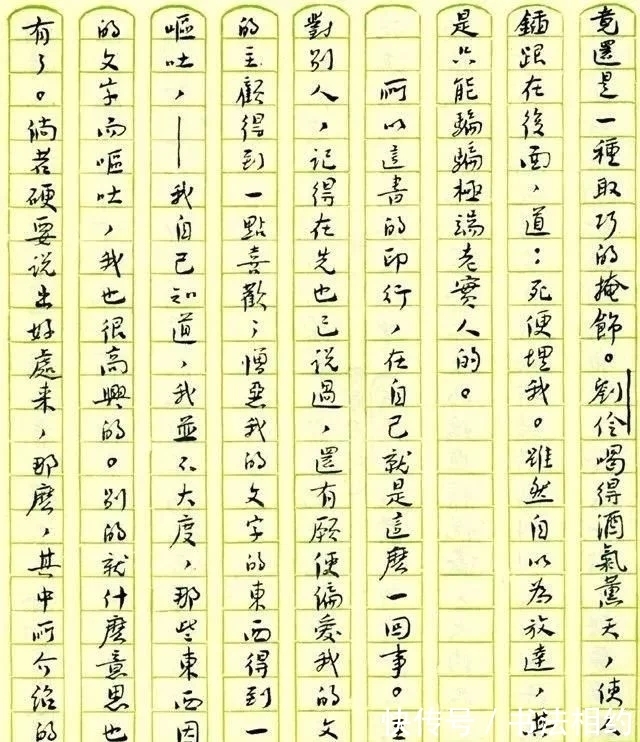 竟還是一種取巧的掩飾。劉伶喝得酒氣薰天,使
鍤跟在後面,道:死便埋我。雖然自以為放達,其
是只能騙騙極端老實人的。
所以這書的印行,在自己就是這麼一回事。至
對別人,記得在先也已說過,還有願使偏愛我的文
的主顧得到一點喜歡;憎惡我的文字的東西得到一
嘔吐,——我自己知道,我並不大度,那些東西因
的文字而嘔吐,我也很高興的。別的就什麼意思也
有了。倘若硬要說出好處來,那麼,其中所介紹的
快传号 / 书法相约